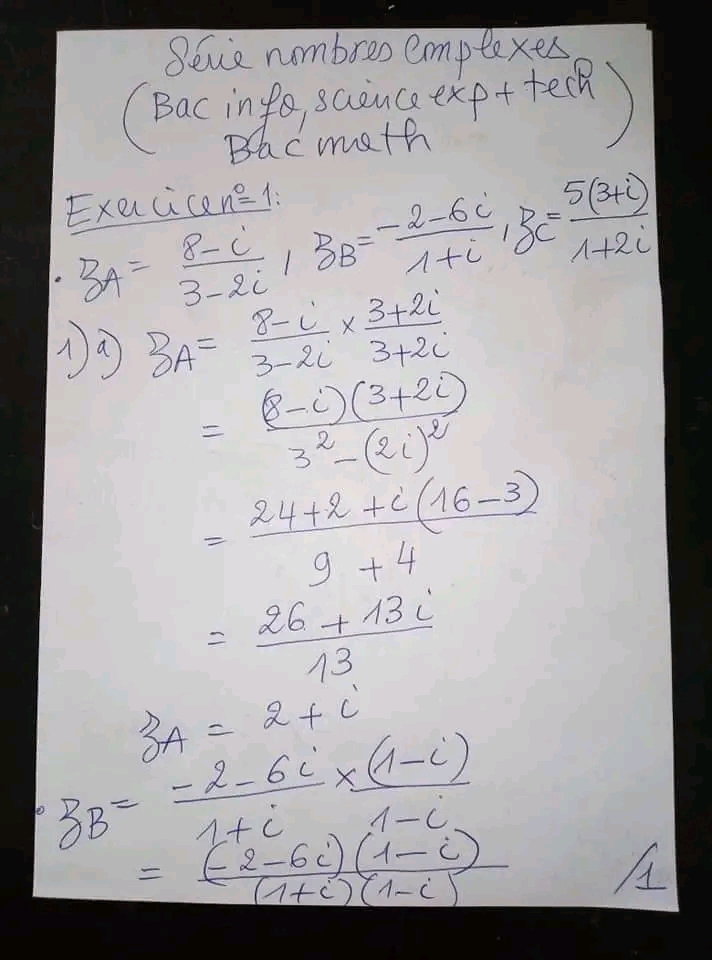 Série nombres Complexes
(Bac info, science exp + tech
Bac math)
Exercice n°=1:
. zA = (8-i)/(3-2i), zB = (-2-6i)/(1+i), zC = 5(3+i)/(1+2i)
1) a) zA = (8-i)/(3-2i) × (3+2i)/(3+2i)
= (8-i)(3+2i)/(3² - (2i)²)
= (24+2+i(16-3))/(9+4)
= (26+13i)/13
zA = 2+i
. zB = (-2-6i)/(1+i) × (1-i)/(1-i)
= (-2-6i)(1-i)/((1+i)(1-i))
/1